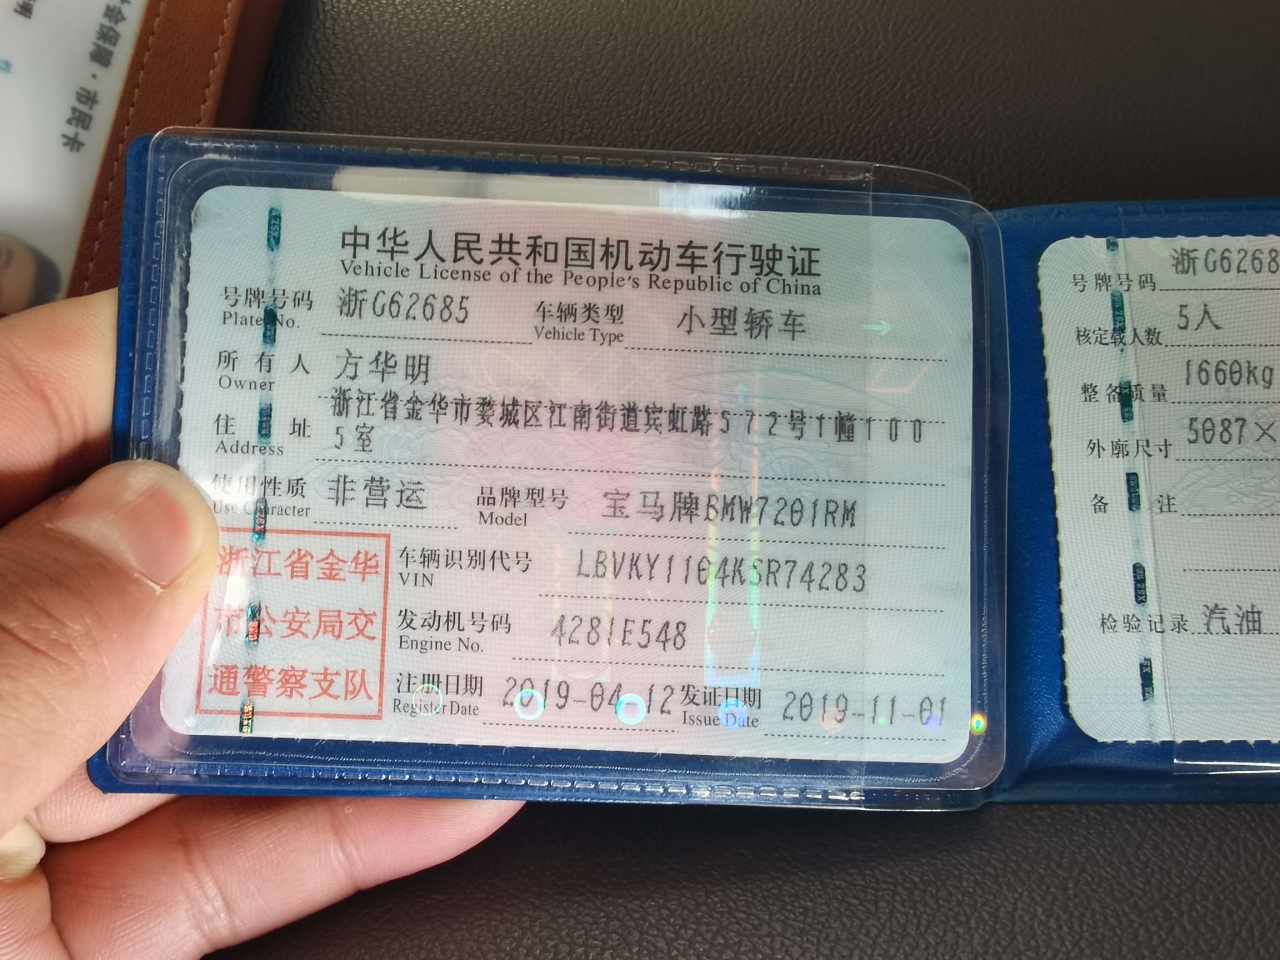 会保障·市民卡
中华人民共和国机动车行驶证
Vehicle License of the People's Republic of China
号牌号码 浙G62685 车辆类型 小型轿车
Plate No. Vehicle Type
所有人 方华明
Owner
住址 浙江省金华市婺城区江南街道宾虹路572号1幢100
Address 5室
使用性质 非营运 品牌型号 宝马牌BMW7201RM
Use Character Model
浙江省金华
市公安局交
通警察支队
车辆识别代号 LBVKY1104KSR74283
VIN
发动机号码 4281E548
Engine No.
注册日期 2019-04-12 发证日期 2019-11-01
Register Date Issue Date
号牌号码 浙G6268
核定载人数 5人
整备质量 1660kg
外廓尺寸 5087×
备注
检验记录 汽油